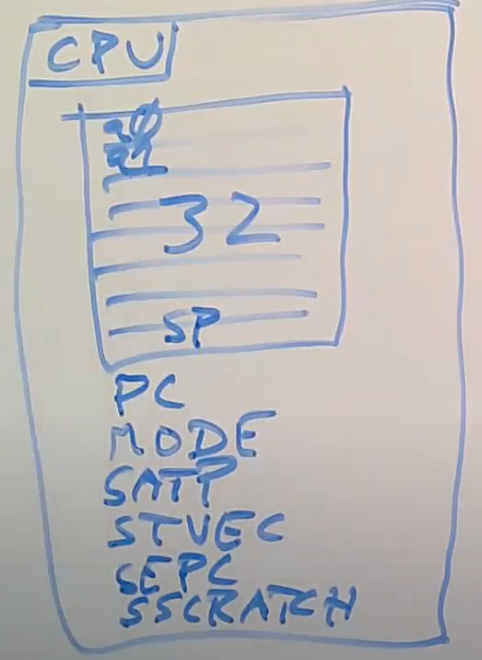 CPU
a0
a1
32
SP
PC
MODE
SATP
STVEC
SEPC
SSCRATCH